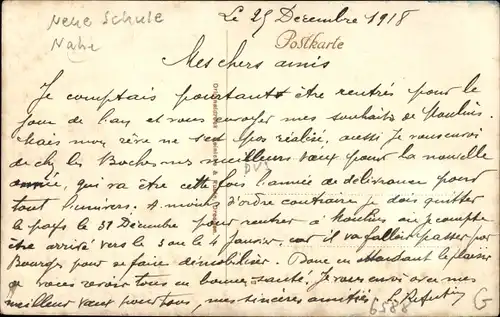 Neue Schule
Nahe
Le 25 Decembre 1918
Postkarte
Mes chers amis
Je comptais pourtant être rentrés pour le
jour de l'an et vous envoyer mes souhaits de Moulins.
Mais mon rêve ne s'est pas réalisé, aussi je vous envoi
de chez les Boches mes meilleurs vœux pour la nouvelle
année, qui va être cette fois l'année de délivrance pour
tout l'univers. A moins d'ordre contraire je dois quitter
le pays le 31 Décembre pour rentrer à Moulins ou je compte
être arrivé vers le 3 ou le 4 Janvier, car il va falloir passer par
Bourges pour se faire démobiliser. Donc en attendant le plaisir
de vous revoir tous en bonne santé. Je vous envoi avec mes
meilleur vœux pour tous, mes sincères amitiés
6588
G